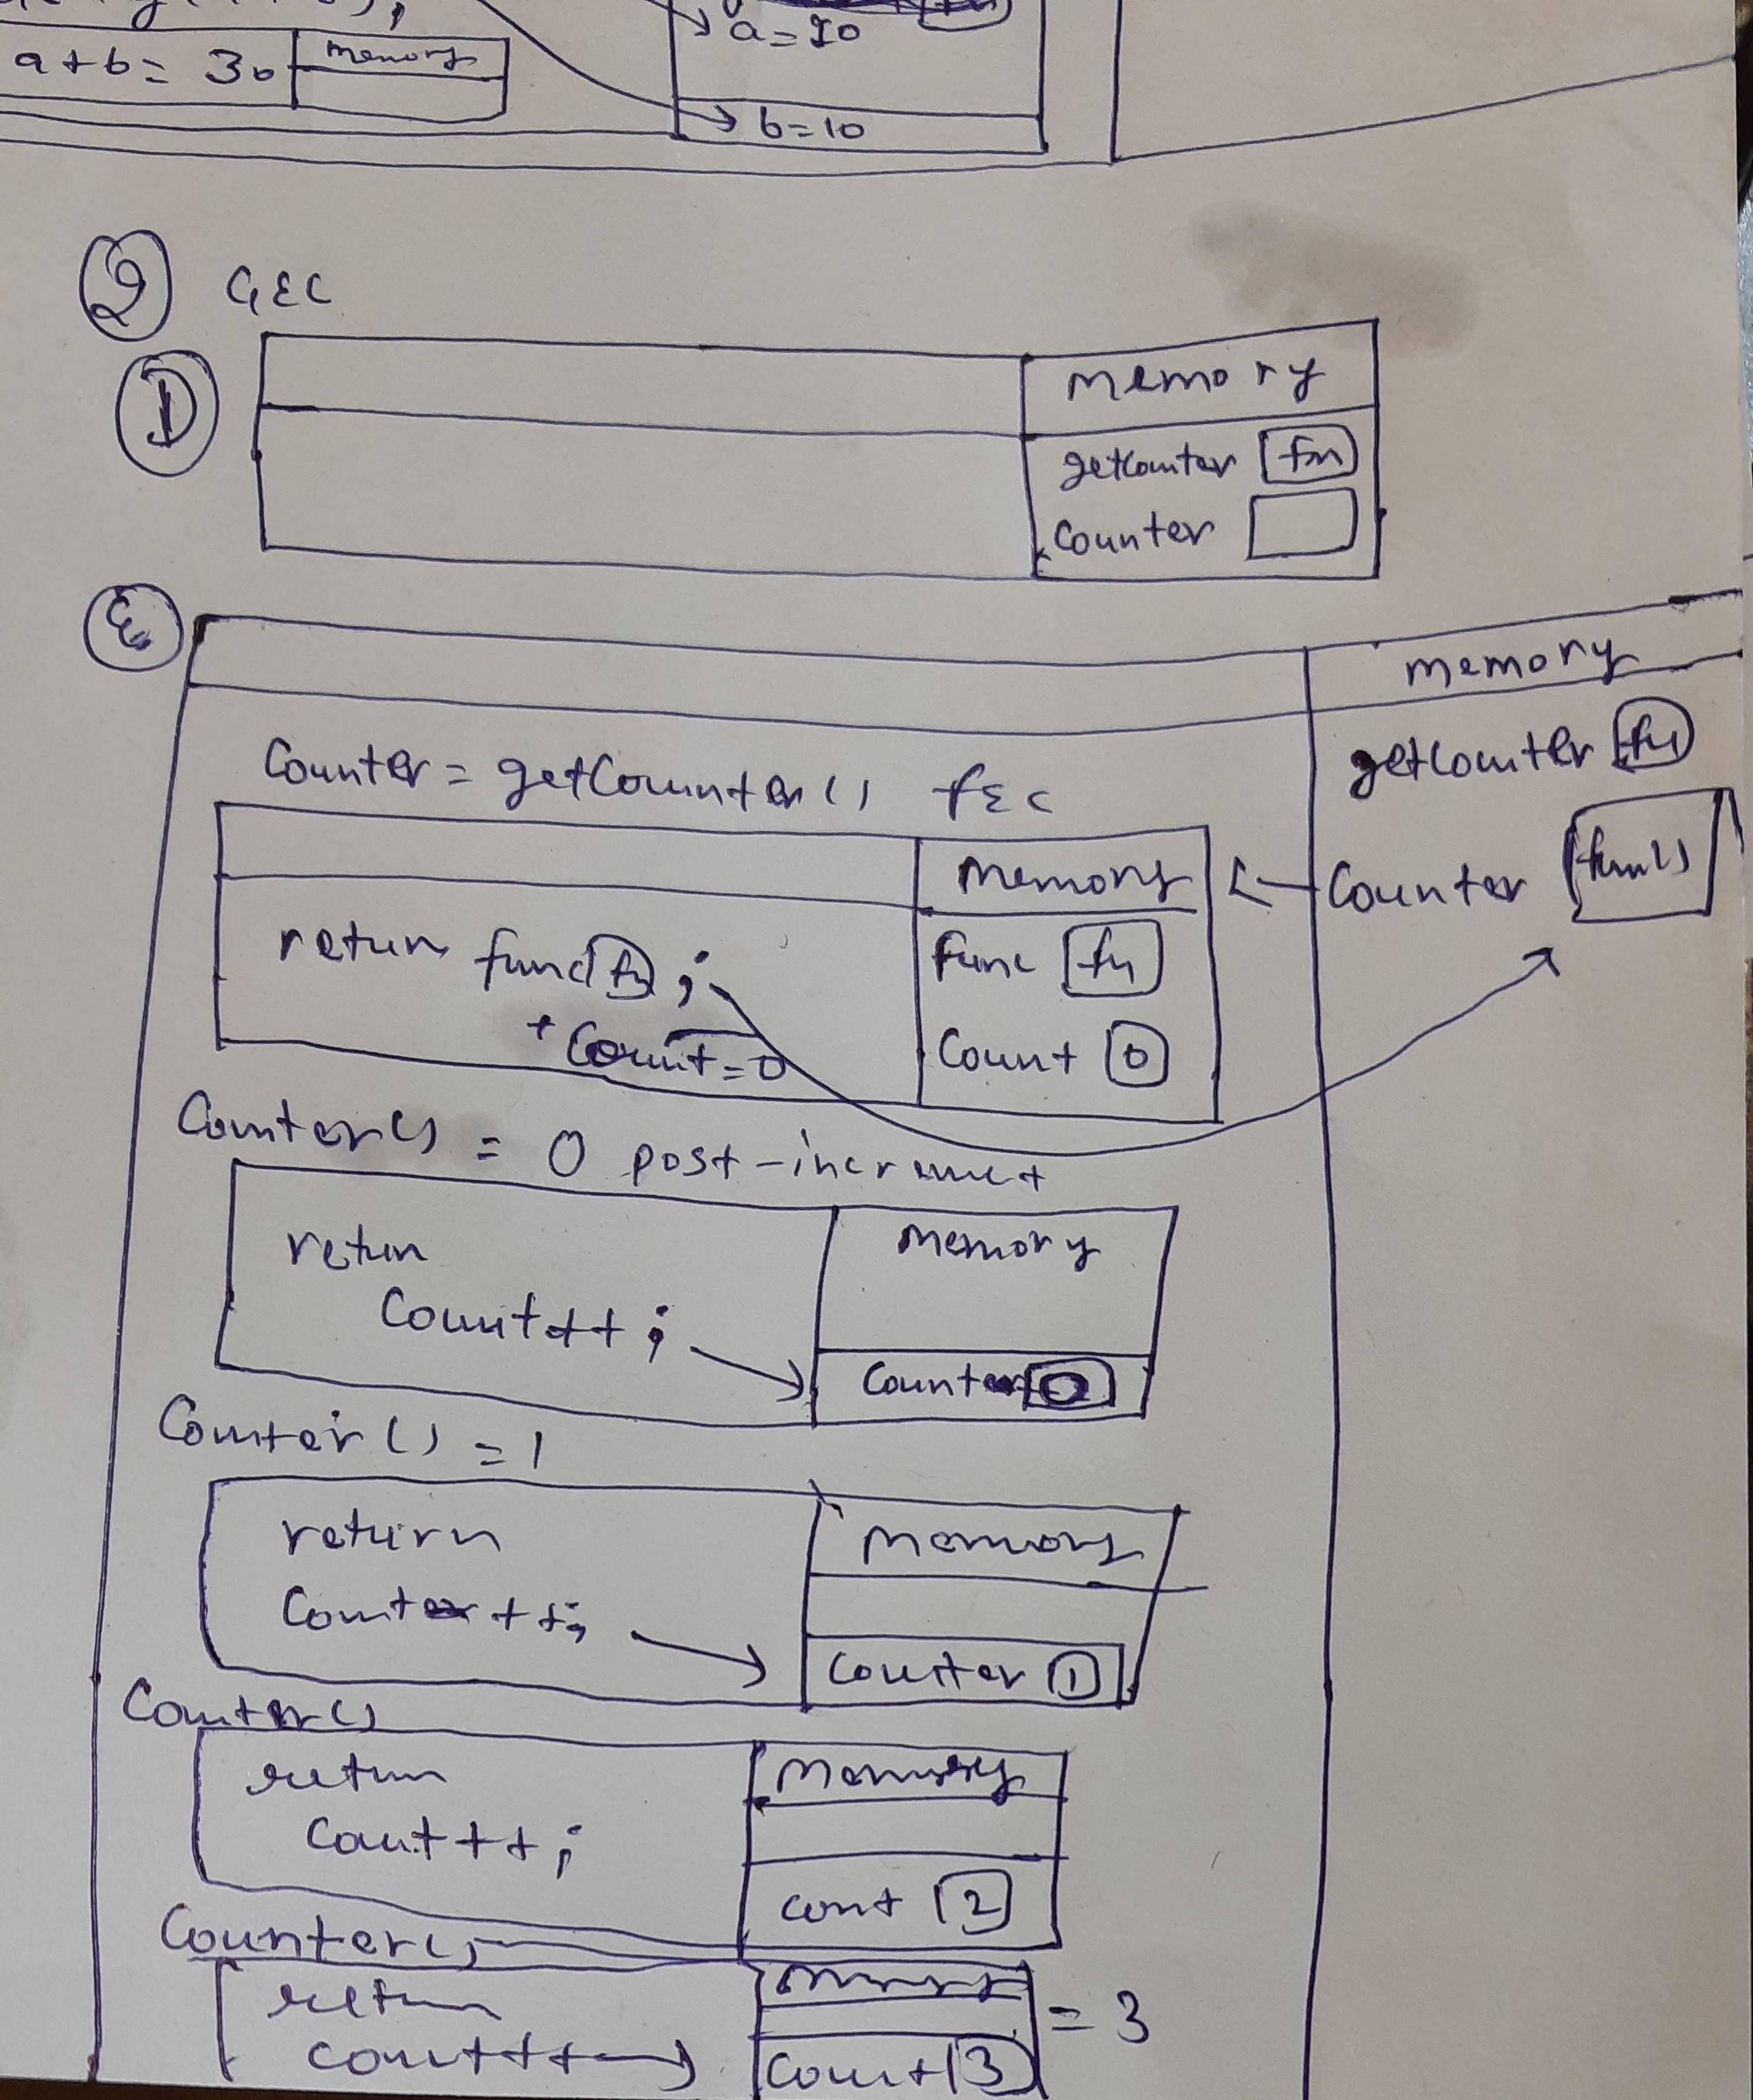 a+b= 30 memory
a=10
b=10
2 GEC
D
memory
getCounter fn
Counter
E
memory
Counter = getCounter() fEC
getCounter fn
memory
Counter func()
return func fn ;
+ Count=0
func fn
Count 0
Counter() = 0 post-increment
return
Count++ ;
memory
Count 0
Counter() = 1
return
Count++;
memory
Counter 1
Counter()
return
Count++;
memory
count 2
Counter()
return
count++
memory
= 3
Count 3